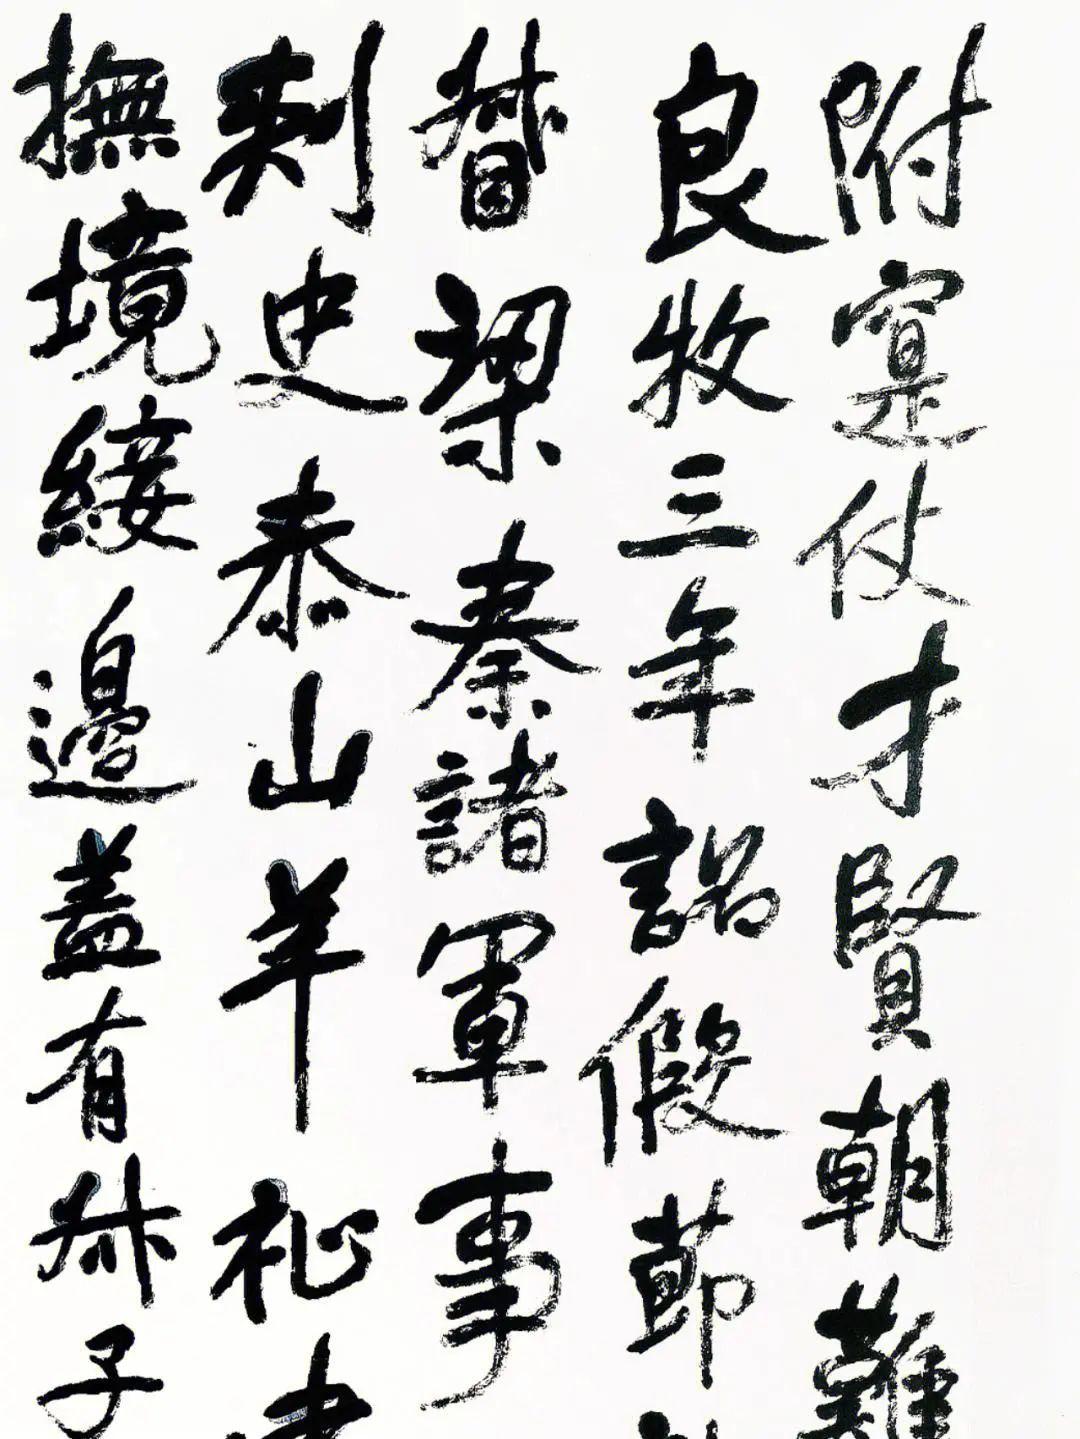 附寔仗才賢朝難
良牧三年詔假節
督梁秦諸軍事
刺史泰山羊祉建
撫境綏邊蓋有叔子